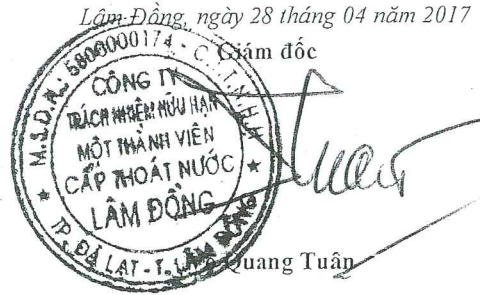 Lâm Đồng, ngày 28 tháng 04 năm 2017
Giám đốc
M.S.D.N: 5800000174 - C.T.T.N.H.H
CÔNG TY
TRÁCH NHIỆM HỮU HẠN
MỘT THÀNH VIÊN
CẤP THOÁT NƯỚC
LÂM ĐỒNG
TP. ĐÀ LẠT - T. LÂM ĐỒNG
Quang Tuân